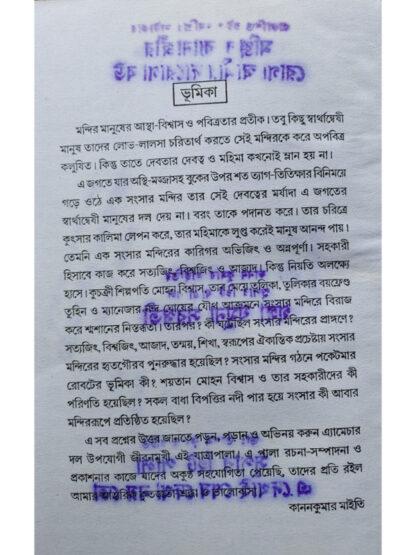 ভূমিকা
মন্দির মানুষের আস্থা-বিশ্বাস ও পবিত্রতার প্রতীক। তবু কিছু স্বার্থান্বেষী
মানুষ তাদের লোভ-লালসা চরিতার্থ করতে সেই মন্দিরকে করে অপবিত্র
কলুষিত। কিন্তু তাতে দেবতার দেবত্ব ও মহিমা কখনোই ম্লান হয় না।
এ জগতে যার অস্থি-মজ্জাসহ বুকের উপর শত ত্যাগ-তিতিক্ষার বিনিময়ে
গড়ে ওঠে এক সংসার মন্দির তার সেই দেবত্বের মর্যাদা এ জগতের
স্বার্থান্বেষী মানুষের দল দেয় না। বরং তাকে পদানত করে। তার চরিত্রে
কুৎসার কালিমা লেপন করে, তার মহিমাকে লুপ্ত করেই মানুষ আনন্দ পায়।
তেমনি এক সংসার মন্দিরের কারিগর অভিজিৎ ও অন্নপূর্ণা। সহকারী
হিসাবে কাজ করে সত্যজিৎ, বিশ্বজিৎ ও আজাদ। কিন্তু নিয়তি অলক্ষ্যে
হাসে। কুচক্রী শিল্পপতি মোহন বিশ্বাস, তার মেয়ে তুলিকা, তুলিকার বয়ফ্রেণ্ড
তুহিন ও ম্যানেজার ঘোষের যৌথ আক্রমনে সংসার মন্দিরে বিরাজ
করে শ্মশানের নিস্তব্ধতা। তারপর? কী ঘটেছিল সংসার মন্দিরের প্রাঙ্গণে?
সত্যজিৎ, বিশ্বজিৎ, আজাদ, তন্ময়, শিখা, স্বরূপের ঐকান্তিক প্রচেষ্টায় সংসার
মন্দিরের হৃতগৌরব পুনরুদ্ধার হয়েছিল? সংসার মন্দির গঠনে পকেটমার
রোবটের ভূমিকা কী? শয়তান মোহন বিশ্বাস ও তার সহকারীদের কী
পরিণতি হয়েছিল? সকল বাধা বিপত্তির নদী পার হয়ে সংসার কী আবার
মন্দিররূপে প্রতিষ্ঠিত হয়েছিল?
এ সব প্রশ্নের উত্তর জানতে পড়ুন, পড়ান ও অভিনয় করুন এ্যামেচার
দল উপযোগী জীবনমুখী এই যাত্রাপালা। এ পালা রচনা-সম্পাদনা ও
প্রকাশনার কাজে যাঁদের অকুন্ঠ সহযোগিতা পেয়েছি, তাদের প্রতি রইল
আমার আন্তরিক কৃতজ্ঞতা শ্রদ্ধা ও ভালোবাসা।
কাননকুমার মাইতি